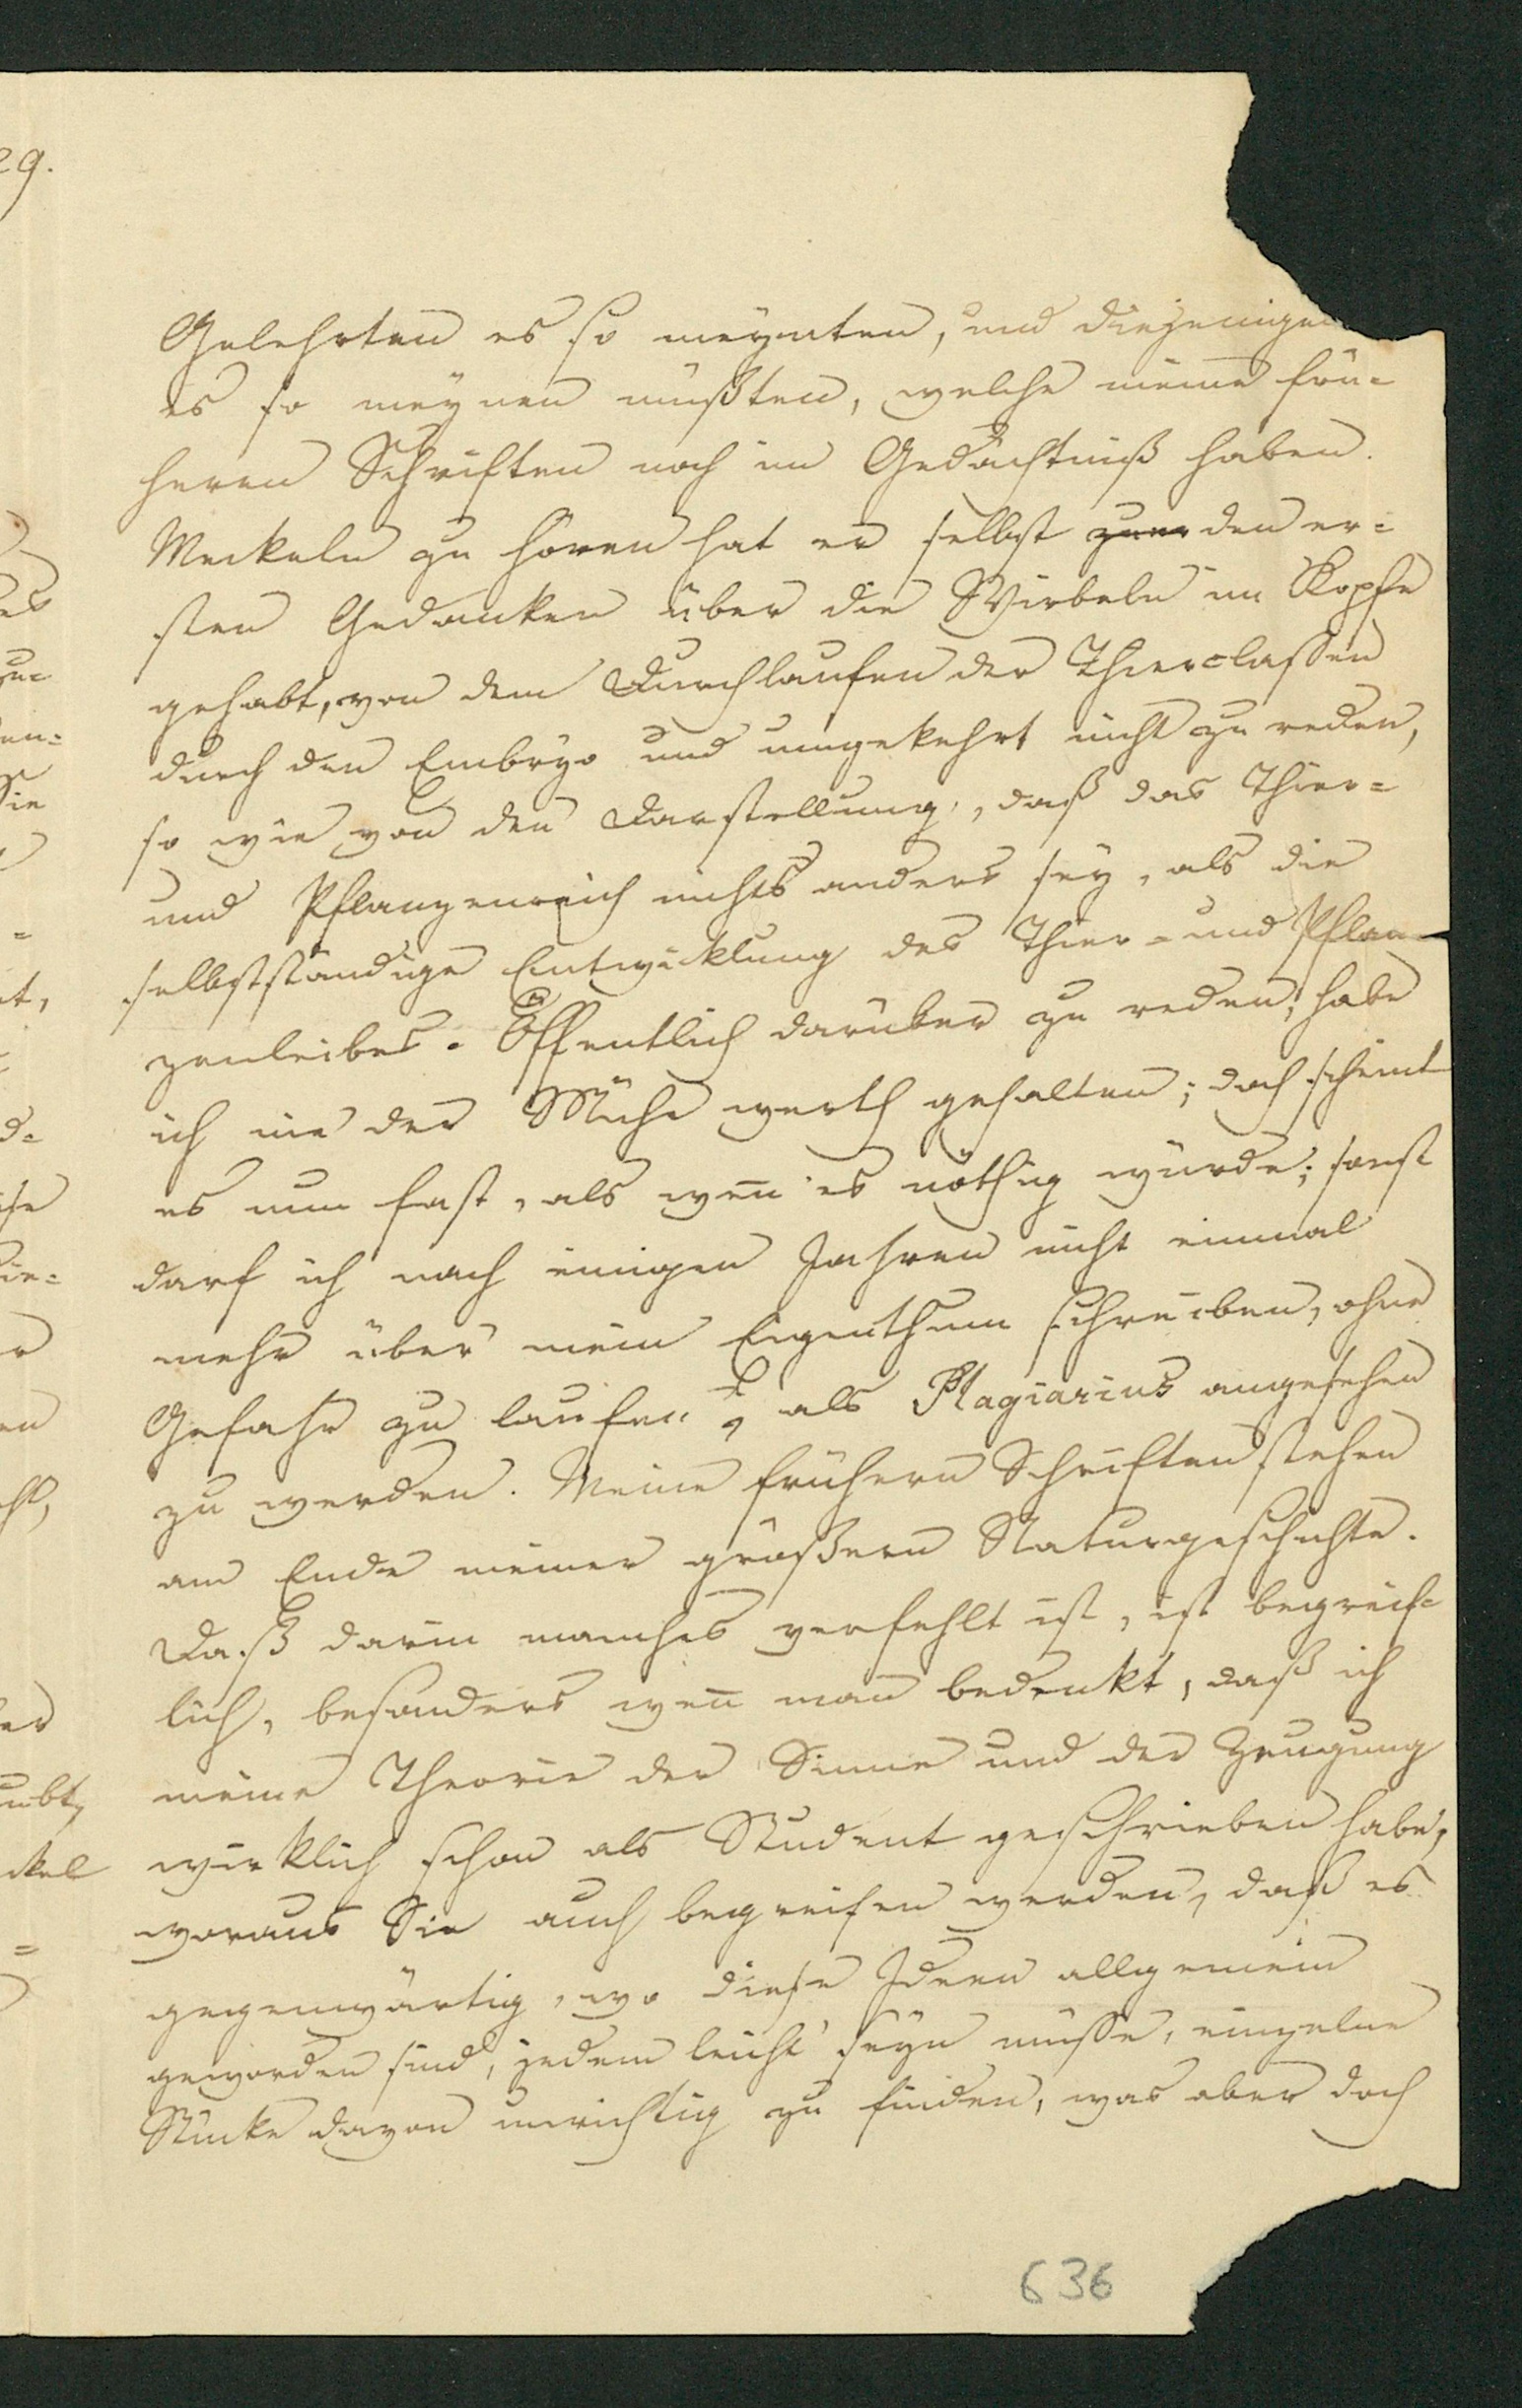 29.
Gelehrten es so meynten, und diejenigen
es so meynen müßten, welche meine frü-
heren Schriften noch im Gedächtniß haben.
Meckeln zu hören hat er selbst den er-
sten Gedanken über die Wirbeln im Kopfe
gehabt, von dem Durchlaufen der Thierclassen
durch den Embryo und umgekehrt nicht zu reden,
so wie von der Darstellung, daß das Thier-
und Pflanzenreich nichts anders sey, als die
selbstständige Entwicklung des Thier- und Pflan-
zenleibes. Öffentlich darüber zu reden, habe
ich nie der Mühe werth gehalten; doch scheint
es nun fast, als wenn es nöthig würde; sonst
darf ich nach einigen Jahren nicht einmal
mehr über mein Eigenthum schreiben, ohne
Gefahr zu laufen, als Plagiarius angesehen
zu werden. Meine frühern Schriften stehen
am Ende meiner größern Naturgeschichte.
Daß darin manches verfehlt ist, ist begreif-
lich, besonders wenn man bedenkt, daß ich
meine Theorie der Sinne und der Zeugung
wirklich schon als Student geschrieben habe,
woraus Sie auch begreifen werden, daß es
gegenwärtig, wo diese Ideen allgemein
geworden sind, jedem leicht seyn müsse, einzelne
Stücke davon unrichtig zu finden, was aber doch
636